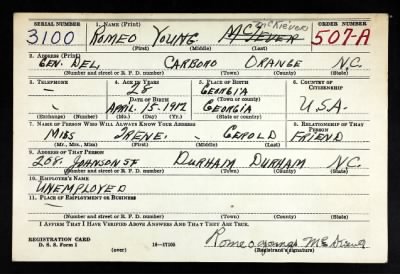 SERIAL NUMBER
1. NAME (Print)
ORDER NUMBER
3100 ROMEO YOUNG McKIEVER 507-A
(First) (Middle) (Last)
2. ADDRESS (Print)
GEN. DEL. CARBORO ORANGE N.C.
(Number and street or R. F. D. number) (Town) (County) (State)
3. TELEPHONE
4. AGE IN YEARS
5. PLACE OF BIRTH
6. COUNTRY OF CITIZENSHIP
— 28 GEORGIA
(Town or county)
DATE OF BIRTH
— APRIL-15-1912 GEORGIA U.S.A.
(Exchange) (Number) (Mo.) (Day) (Yr.) (State or country)
7. NAME OF PERSON WHO WILL ALWAYS KNOW YOUR ADDRESS
8. RELATIONSHIP OF THAT PERSON
MISS IRENE. - GEROLD FRIEND
(Mr., Mrs., Miss) (First) (Middle) (Last)
9. ADDRESS OF THAT PERSON
208. JOHNSON ST DURHAM DURHAM N.C.
(Number and street or R. F. D. number) (Town) (County) (State)
10. EMPLOYER'S NAME
UNEMPLOYED
11. PLACE OF EMPLOYMENT OR BUSINESS
—
(Number and street or R. F. D. number) (Town) (County) (State)
I AFFIRM THAT I HAVE VERIFIED ABOVE ANSWERS AND THAT THEY ARE TRUE.
REGISTRATION CARD
D. S. S. Form 1
(over)
16—17105
Romeo Young
(Registrant's signature)